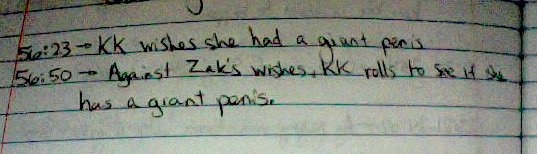 56:23 → KK wishes she had a giant penis
56:50 → Against Zak's wishes, KK rolls to see if she
has a giant penis.